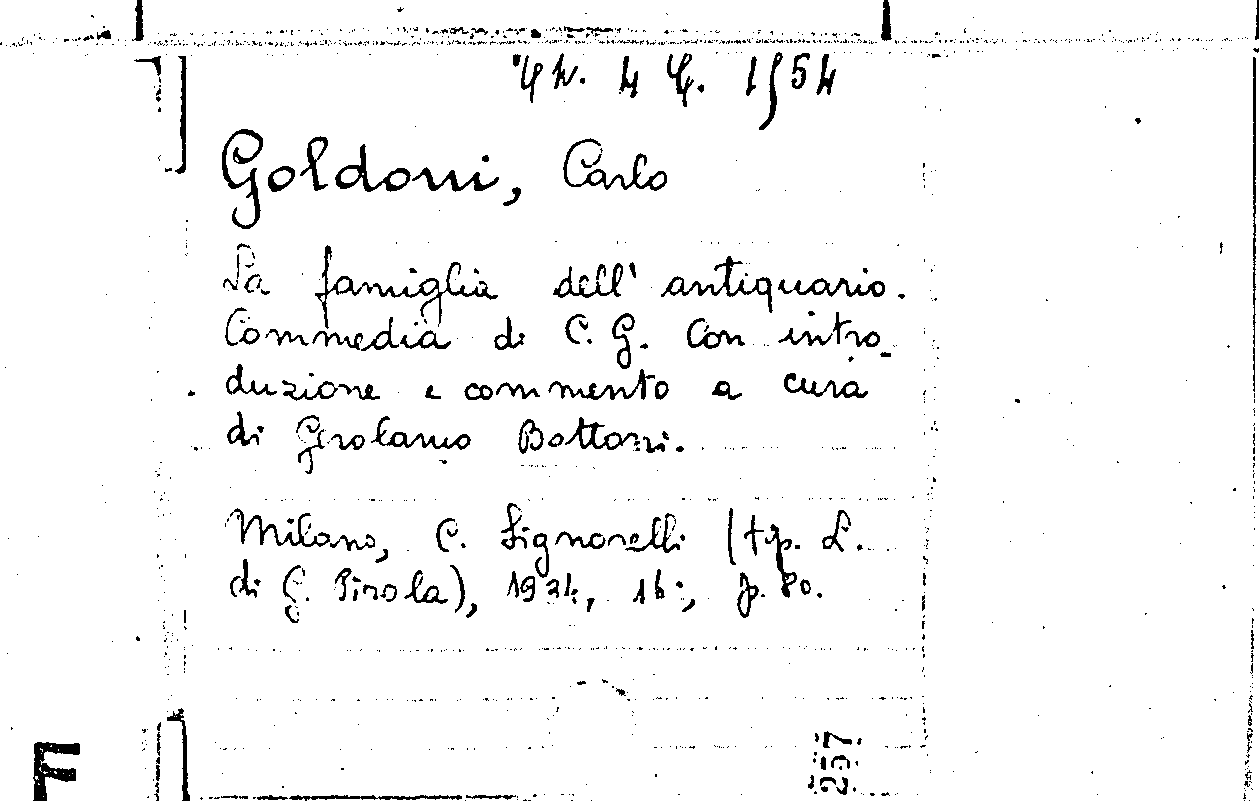 4 C. 1/54
Goldoni, Carlo
La famiglia dell' antiquario.
Commedia di C. G. Con intro_
duzione e commento a cura
di Gerolamo Bottoni.
Milano, C. Signorelli (tip. L.
di G. Pirola), 1934, 16°, p. 80.
257
F